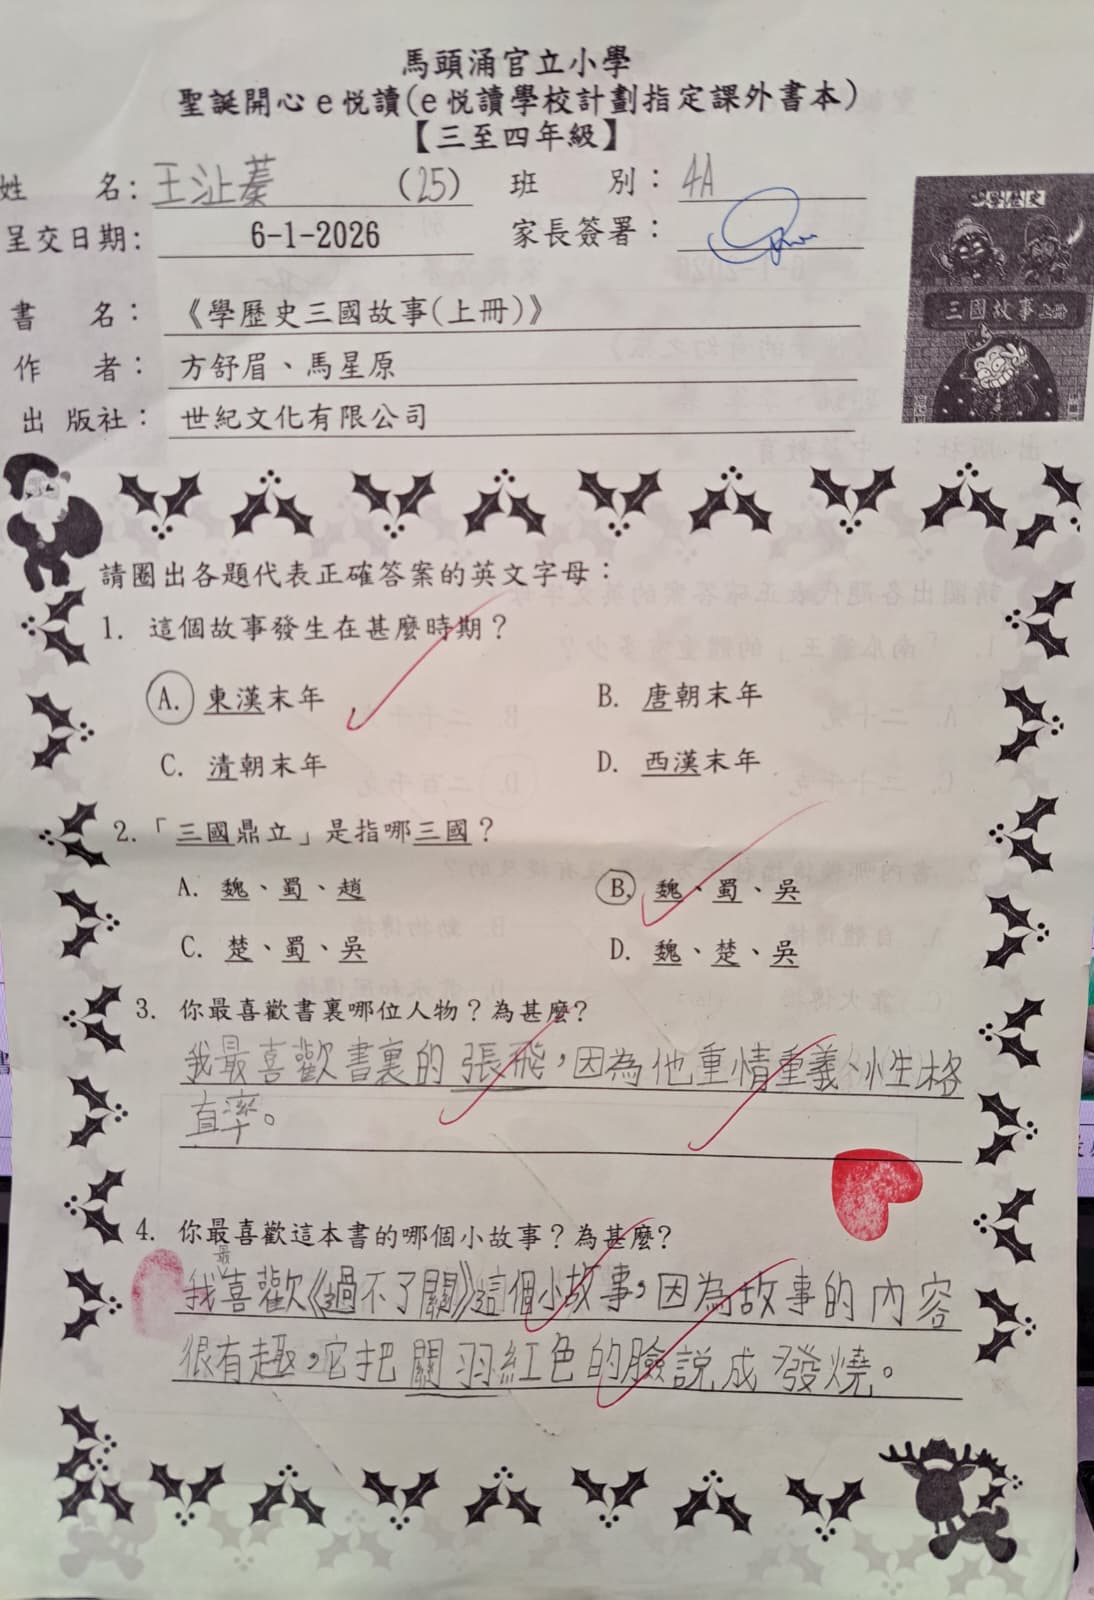 馬頭涌官立小學
聖誕開心e悅讀(e悅讀學校計劃指定課外書本)
【三至四年級】
姓 名: 王沚蓁 (25) 班 別: 4A
呈交日期: 6-1-2026 家長簽署:
書 名: 《學歷史三國故事(上冊)》
作 者: 方舒眉、馬星原
出 版社: 世紀文化有限公司
學歷史
三國故事上冊
請圈出各題代表正確答案的英文字母:
1. 這個故事發生在甚麼時期?
A. 東漢末年 B. 唐朝末年
C. 清朝末年 D. 西漢末年
2.「三國鼎立」是指哪三國?
A. 魏、蜀、趙 B. 魏、蜀、吳
C. 楚、蜀、吳 D. 魏、楚、吳
3. 你最喜歡書裏哪位人物?為甚麼?
我最喜歡書裏的張飛,因為他重情重義、性格
直率。
4. 你最喜歡這本書的哪個小故事?為甚麼?
我最喜歡《過不了關》這個小故事,因為故事的內容
很有趣,它把關羽紅色的臉說成發燒。